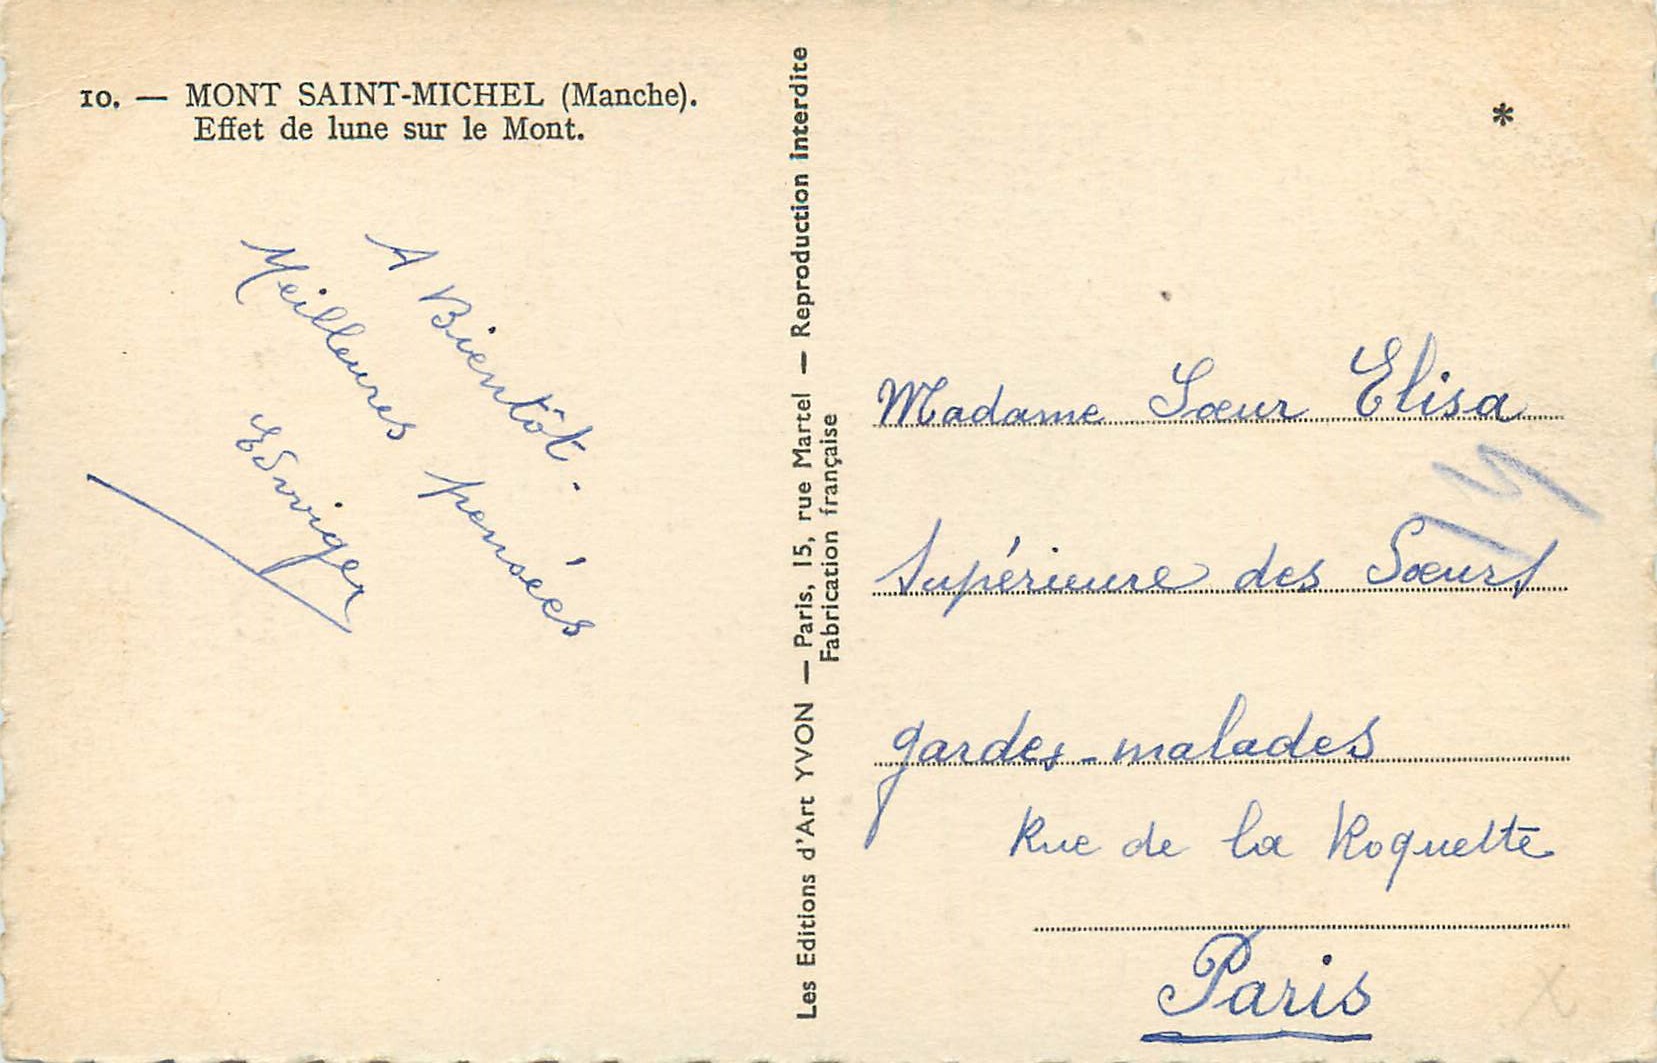 10. — MONT SAINT-MICHEL (Manche).
Effet de lune sur le Mont.
A Bientôt.
Meilleures pensées
Les Editions d'Art YVON — Paris, 15, rue Martel — Reproduction interdite
Fabrication française
*
Madame Sœur Elisa
Supérieure des Sœurs
gardes-malades
Rue de la Roquette
Paris